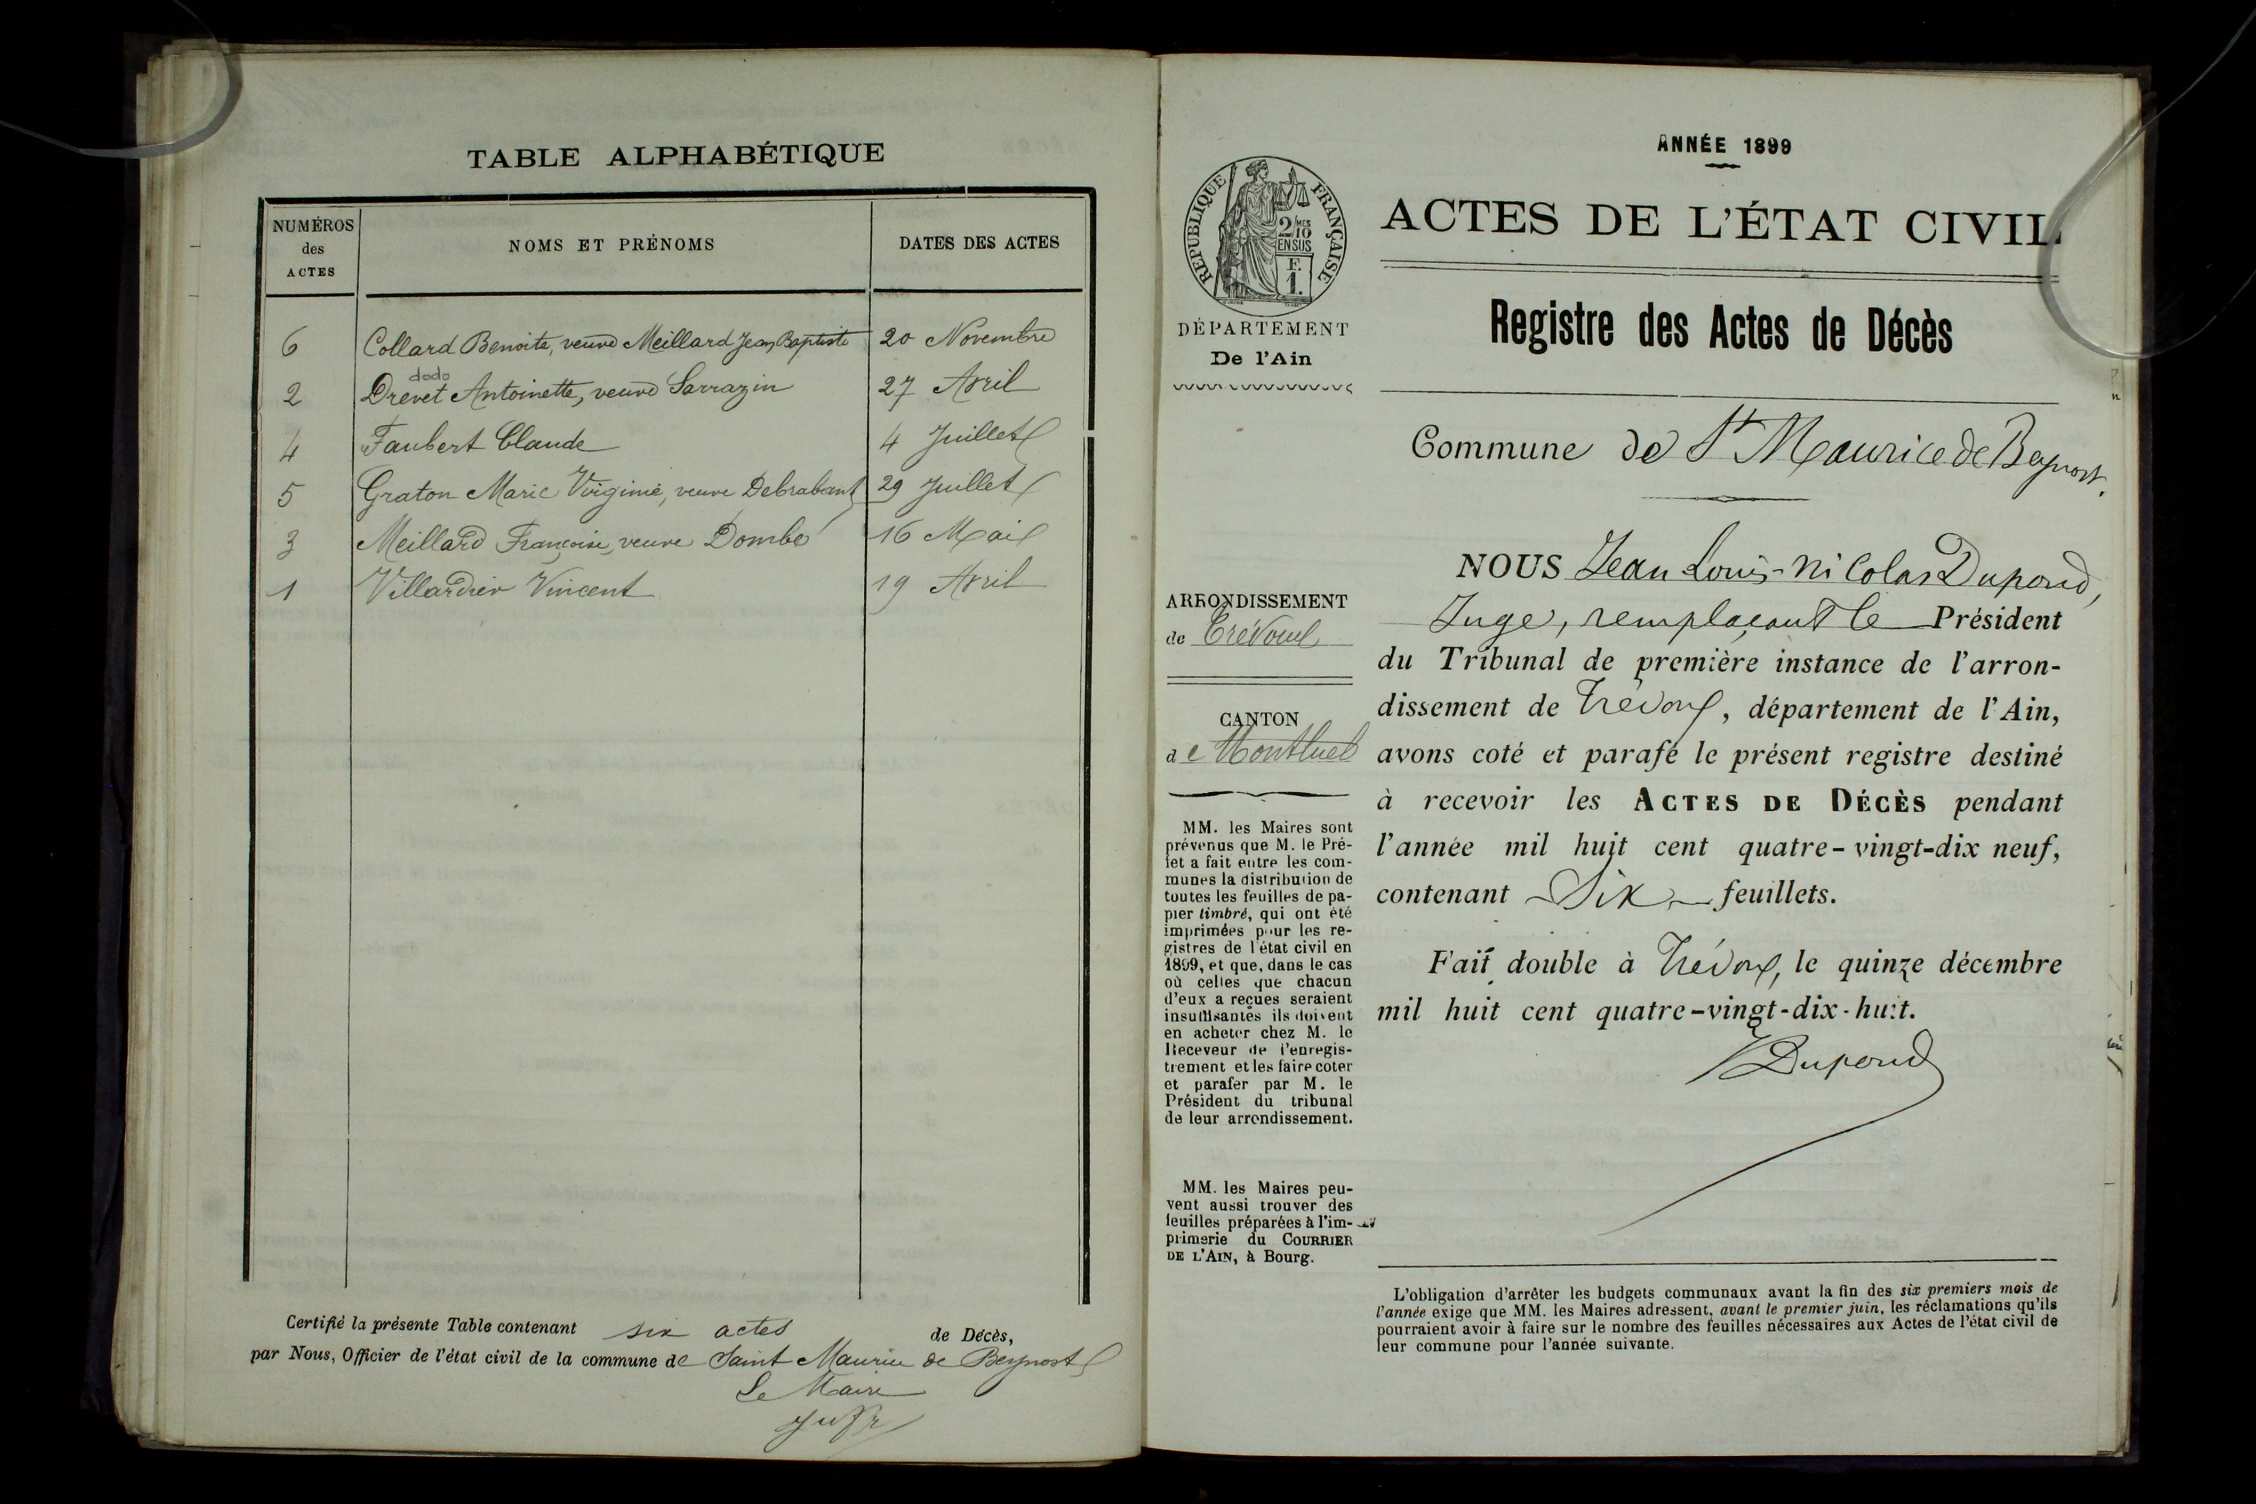 TABLE ALPHABÉTIQUE
NUMÉROS des ACTES
NOMS ET PRÉNOMS
DATES DES ACTES
6 Collard Benoite, veuve Meillard Jean Baptiste 20 Novembre
dodo
2 Drevet Antoinette, veuve Sarrazin 27 Avril
4 Faubert Claude 4 Juillet
5 Graton Marie Virginie, veuve Debrabant 29 Juillet
3 Meillard Françoise, veuve Dombe 16 Mai
1 Villardier Vincent 19 Avril
Certifié la présente Table contenant six actes de Décès,
par Nous, Officier de l'état civil de la commune de Saint Maurice de Beynost
Le Maire
ANNÉE 1899
RÉPUBLIQUE FRANÇAISE
2/10 MES
EN SUS
F.
1.
DÉPARTEMENT
De l'Ain
ARRONDISSEMENT
de Trévoux
CANTON
de Montluel
MM. les Maires sont
prévenus que M. le Pré-
fet a fait entre les com-
munes la distribution de
toutes les feuilles de pa-
pier timbré, qui ont été
imprimées pour les re-
gistres de l'état civil en
1899, et que, dans le cas
où celles que chacun
d'eux a reçues seraient
insuffisantes ils doivent
en acheter chez M. le
Receveur de l'enregis-
trement et les faire coter
et parafer par M. le
Président du tribunal
de leur arrondissement.
MM. les Maires peu-
vent aussi trouver des
feuilles préparées à l'im-
primerie du COURRIER
DE L'AIN, à Bourg.
ACTES DE L'ÉTAT CIVIL
Registre des Actes de Décès
Commune de St Maurice de Beynost.
NOUS Jean Louis-Nicolas Dupond,
Juge, remplaçant le Président
du Tribunal de première instance de l'arron-
dissement de Trévoux, département de l'Ain,
avons coté et parafé le présent registre destiné
à recevoir les ACTES DE DÉCÈS pendant
l'année mil huit cent quatre-vingt-dix neuf,
contenant Six feuillets.
Fait double à Trévoux, le quinze décembre
mil huit cent quatre-vingt-dix-huit.
Dupond
L'obligation d'arrêter les budgets communaux avant la fin des six premiers mois de
l'année exige que MM. les Maires adressent, avant le premier juin, les réclamations qu'ils
pourraient avoir à faire sur le nombre des feuilles nécessaires aux Actes de l'état civil de
leur commune pour l'année suivante.